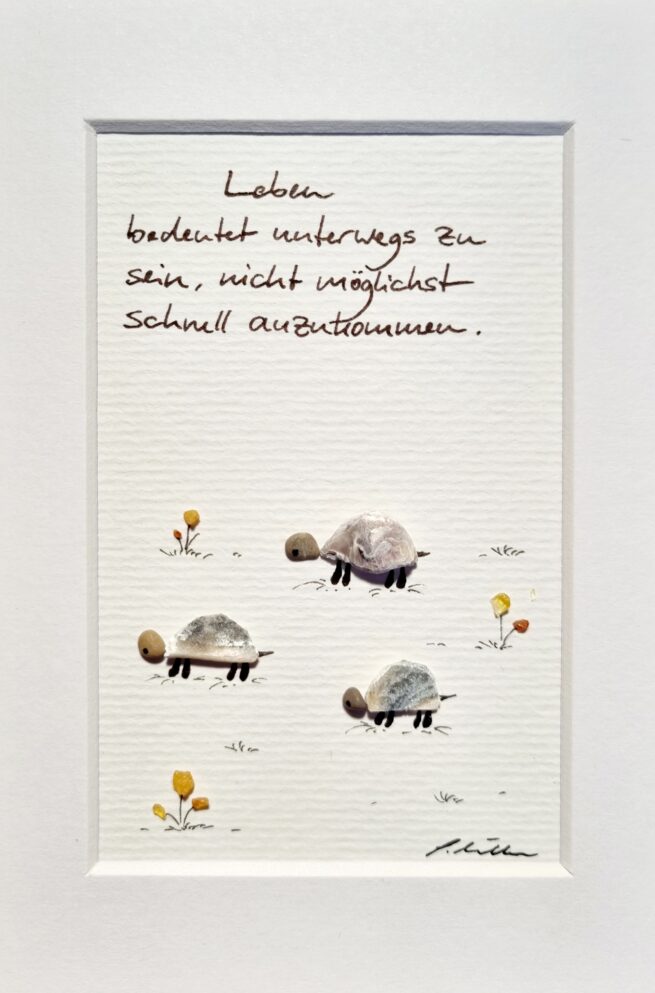 Leben
bedeutet unterwegs zu
sein, nicht möglichst
schnell anzukommen.